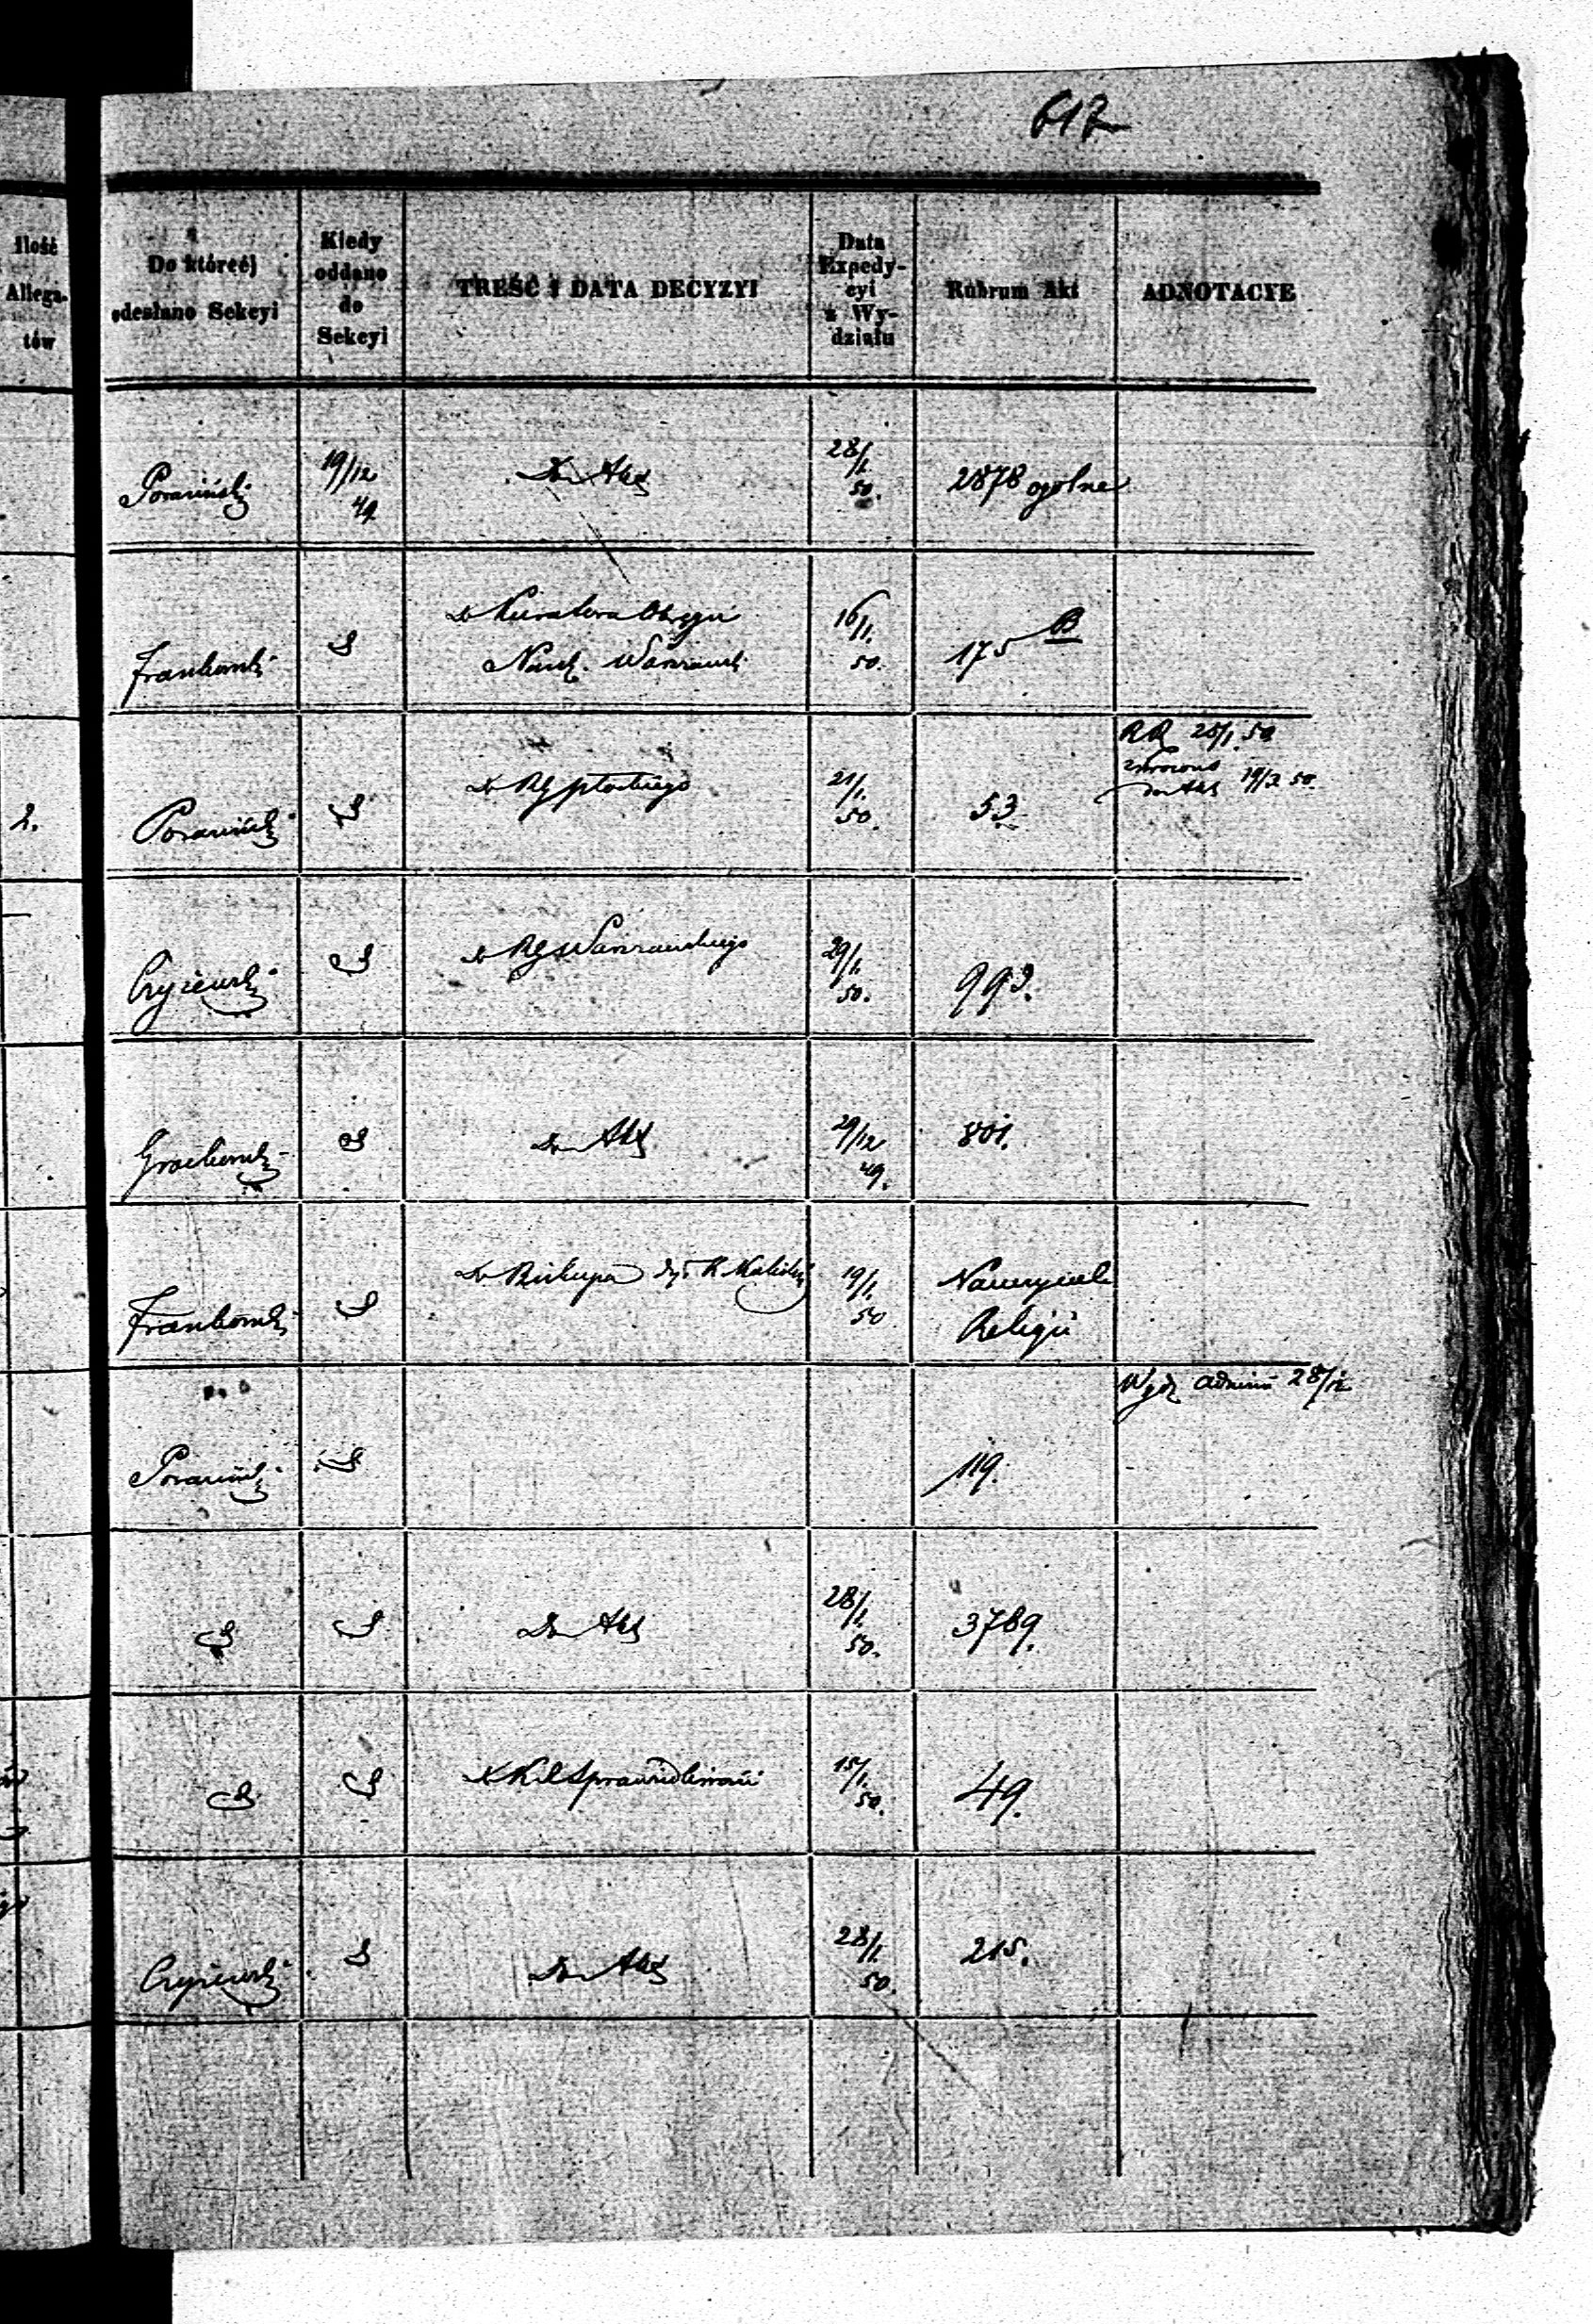 617
Ilość
Allega-
tów
Do któreéj
odesłano Sekcyi
Kiedy
oddano
do
Sekcyi
TREŚĆ I DATA DECYZYI
Data
Expedy-
cyi
z Wy-
działu
Rubrum Akt
ADNOTACYE
19/12
49
Do Akt
28/1.
50.
2878 ogólne
Do Kuratora Okręgu
Nauk. Warszawsk.
16/1.
50.
175 B
2.
Do RG Płockiego
21/1.
50.
53.
RR 25/1. 50
zwrócono
do Akt 19/3 50.
Czyżewski
Do RG Warszawskiego
29/1.
50.
993.
Grochowski
Do Akt
29/12
49.
801.
Frankowski
Do Biskupa
19/1.
50
Nauczyciele
Religii
119.
Wydz admin 28/12
Do Akt
28/1.
50.
3789.
Sprawiedliwości
15/1.
50.
49.
Czyżewski
Do Akt
28/1.
50.
215.